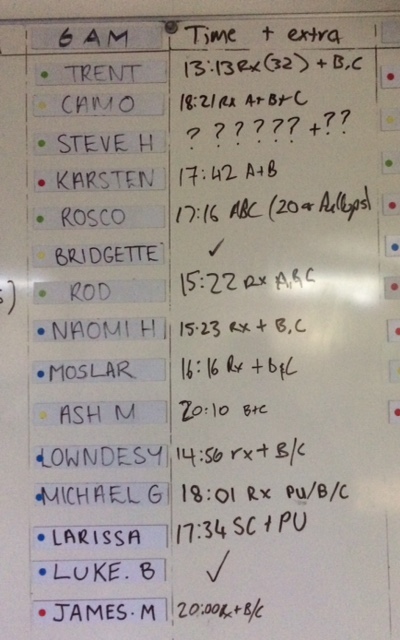 6 AM Time + extra
TRENT 13:13 Rx (32) + B,C
CAMO 18:21 Rx A+B+C
STEVE H ? ? ? ? ? ? + ??
KARSTEN 17:42 A+B
ROSCO 17:16 ABC (20
BRIDGETTE ✓
ROD 15:22 Rx A,B,C
NAOMI H 15:23 Rx + B,C
MOSLAR 16:16 Rx + B&C
ASH M 20:10 B+C
LOWNDESY 14:56 rx + B/C
MICHAEL G 18:01 Rx PU/B/C
LARISSA 17:34 SC + PU
LUKE. B ✓
JAMES. M 20:00 Rx + B/C